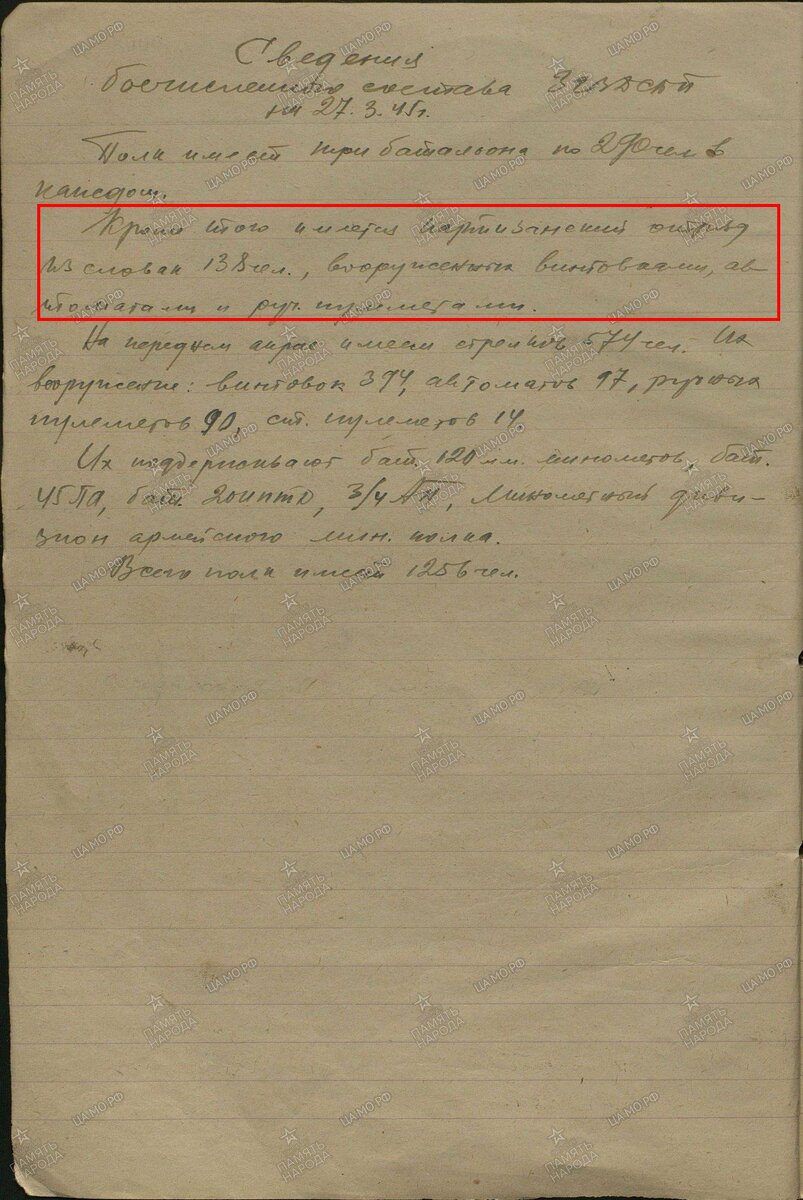 Сведения
боечисленного состава
на 27.3.45г.
Полк имеет три батальона по 290 чел в
каждом.
Кроме того имеется партизанский отряд
из словак 138 чел., вооруженных винтовками, ав-
томатами и руч. пулеметами.
На переднем крае имеем стрелков 574 чел. Их
вооружение: винтовок 394, автоматов 97, ручных
пулеметов 90, ст. пулеметов 14.
Их поддерживают бат. 120 мм. минометов, бат.
45 ПА, бат. 3/4 АП, Минометный диви-
зион армейского мин. полка.
Всего полк имеет 1256 чел.
ПАМЯТЬ НАРОДА
ЦАМО.РФ